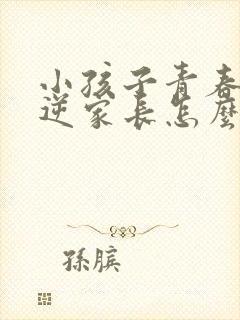 小孩子青春
逆家长怎麼
孫臏